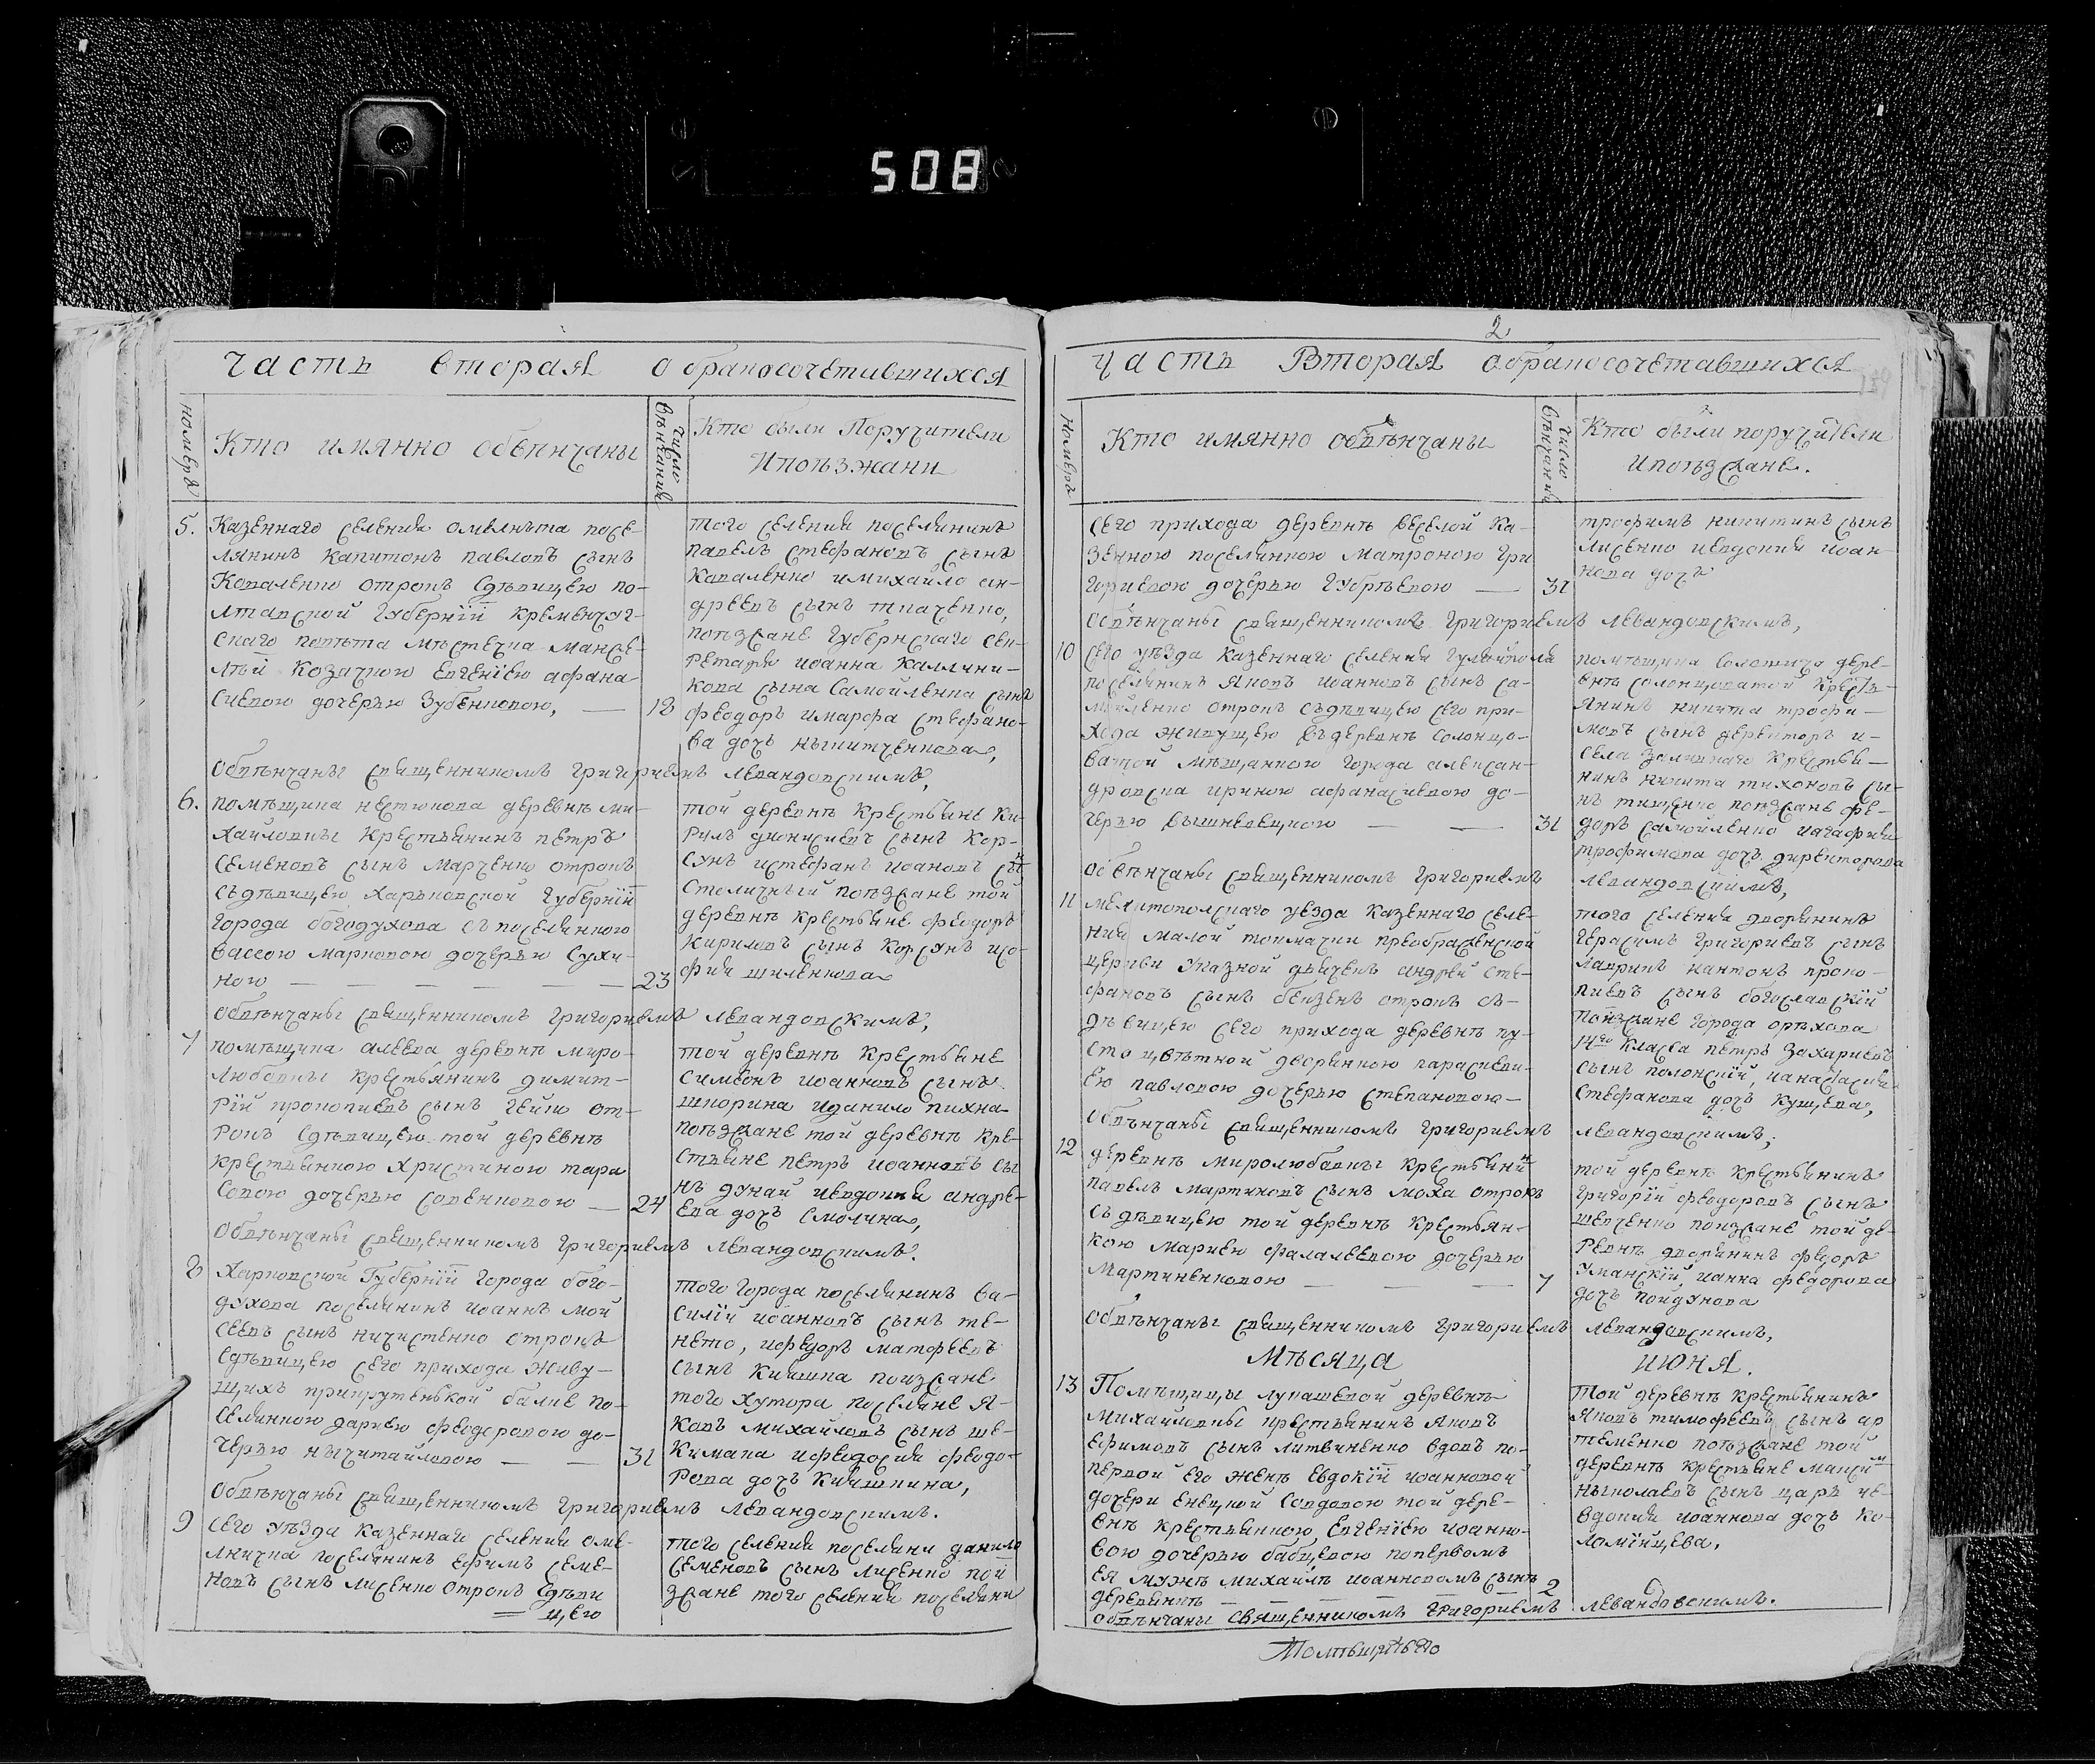 508
часть вторая о бракосочетавшихся
номеръ
Кто имянно обвѣнчаны
число вѣнчания
Кто были Поручители
И поѣзжани
5. Казеннаго селения омелнѣка посе-
лянинъ Капитонъ павловъ сынъ
Коваленко отрокъ сдѣвицею по-
лтавской Губерніи Кременчуг-
скаго повѣта мѣстечка Манже-
лѣй Козачкою Евгеніею афана
сиевою дочерью Зубенковою, — 18
того селения поселянинъ
павелъ стефановъ сынъ
Коваленко и михайло ан-
дреевъ сынъ ткаченко,
поѣзжане Губернскаго сек-
ретаря иоанна Каллини-
кова сына Самойленка сынъ
феодоръ и марфа стефано-
ва дочь
Обвѣнчаны священникомъ григориемъ левандовскимъ,
6. помѣщика нестюкова деревнѣ ми-
хайловки крестьянинъ петръ
семеновъ сынъ марченко отрокъ
съдѣвицею харьковской Губерніи
города богодухова съ поселянкою
вассою марковою дочерью Сухи-
ною — 23
той деревнѣ крестьяне Ки-
рилъ дионисиевъ сынъ Кор-
сунъ и стефанъ иоановъ сынъ
столичный поѣзжане той
деревнѣ крестьяне феодоръ
Кириловъ сынъ Корсунъ и со-
фия шиленкова
обвѣнчаны священникомъ григориемъ левандовскимъ,
7 помѣщика алеева деревнѣ миро-
любовки крестьянинъ димит-
рій прокопиевъ сынъ гейко от-
рокъ сдѣвицею той деревнѣ
крестьянкою христиною тара
совою дочерью совенковою — 24
той деревнѣ крестьяне
Симеонъ иоанновъ сынъ
шпорина и данило пихна
поѣзжане той деревнѣ кре-
стьяне петръ иоанновъ сы
нъ дунай и евдокия андре-
ева дочь Смолина,
Обвѣнчаны священникомъ григориемъ левандовскимъ.
8 Харковской Губерніи города бого-
духова поселянинъ иоаннъ мой
сеевъ сынъ ничистенко отрокъ
сдѣвицею сего прихода живу-
щихъ прикрутенькой балке по-
селянкою дариею феодоровою до-
черью — 31
того города поселянинъ ва-
силій иоанновъ сынъ те-
нето, и феодоръ матфеевъ
сынъ Кияшка поизжане
того хутора поселяне я-
ковъ михайловъ сынъ ше-
кимака и феодосия феодо-
рова дочь Кияшкина,
Обвѣнчаны священникомъ григориемъ левандовскимъ.
9 сего уѣзда казеннаго селения оме-
лничка поселянинъ ефимъ семе-
новъ сынъ лисенко отрокъ сдѣви
— цею
того селения поселяни данило
семеновъ сынъ лисенко пои
зжане того селения поселяни
2
часть Вторая обракосочетавшихся
номеръ
Кто имянно обвѣнчаны
число вѣнчания
Кто были поручители
И поѣзжане.
сего прихода деревнѣ веселой ка-
зенною поселянкою матроною гри
гориевою дочерью — 31
трофимъ никитинъ сынъ
лисенко и евдокия иоан-
нова дочь
обвѣнчаны священникомъ григориемъ левандовскимъ,
10 сего уѣзда казеннаго селения гуляйполя
поселянинъ яковъ иоанновъ сынъ са-
мойленко отрокъ съдѣвицею сего при-
хода живущею въдеревнѣ солонцо-
ватой мѣщанкою города алексан-
дровска ириною афанасиевою до-
черью вышневецкою — 31
помѣщика дере-
внѣ солонцоватой кресть-
янинъ никита трофи-
мовъ сынъ и-
села крестья-
нинъ никита тихоновъ сы-
нъ тищенко поѣзжане фе-
доръ самойленко и агафия
трофимова дочь директорова
обвѣнчаны священникомъ григориемъ левандовскимъ,
11 мелитополскаго уезда казеннаго селе-
ния малой токмачки преображенской
церкви указной дьячекъ андрей сте-
фановъ сынъ отрокъ съ-
дѣвицею сего прихода деревнѣ пу-
сто цвѣтной дворянкою параскеви-
ею павловою дочерью степановою —
того селения дворянинъ
герасимъ григориевъ сынъ
лаврикъ и антонъ проко-
пиевъ сынъ богославскій
поизжане города орѣхова
14го класса петръ захариевъ
сынъ полонскій, и анастасия
стефанова дочь кущева,
Обвѣнчаны священникомъ григориемъ левандовскимъ,
12 деревнѣ миролюбовки крестьянинъ
павелъ мартиновъ сынъ моха отрокъ
съдѣвицею той деревнѣ крестьян-
кою мариею фалалеевою дочерью
мартиненковою — 7
той деревнѣ крестьянинъ
григорій феодоровъ сынъ
шевченко поизжане той де-
ревнѣ дворянинъ федоръ
уманскій, и анна федорова
дочь пойдунова
обвѣнчаны священникомъ григориемъ левандовскимъ,
Мѣсяца июня.
13 Помѣщицы лукашевой деревнѣ
михайловки крестьянинъ яковъ
ефимовъ сынъ литвиненко вдовъ по-
первой его женѣ евдокіи иоанновой
дочери енецкой совдовою той дере-
внѣ крестьянкою, евгеніею иоанно-
вою дочерью бабцевою попервомъ
ея мужѣ михаилѣ иоанновомъ сынѣ
— 2
той деревнѣ крестьянинъ
яковъ тимофеевъ сынъ ар
теменко поѣзжане той
деревнѣ крестьяне максим
ныколаевъ сынъ царъ и е-
вдокия иоаннова дочь ко-
ломійцева.
обвѣнчаны священникомъ григориемъ левандовскимъ.